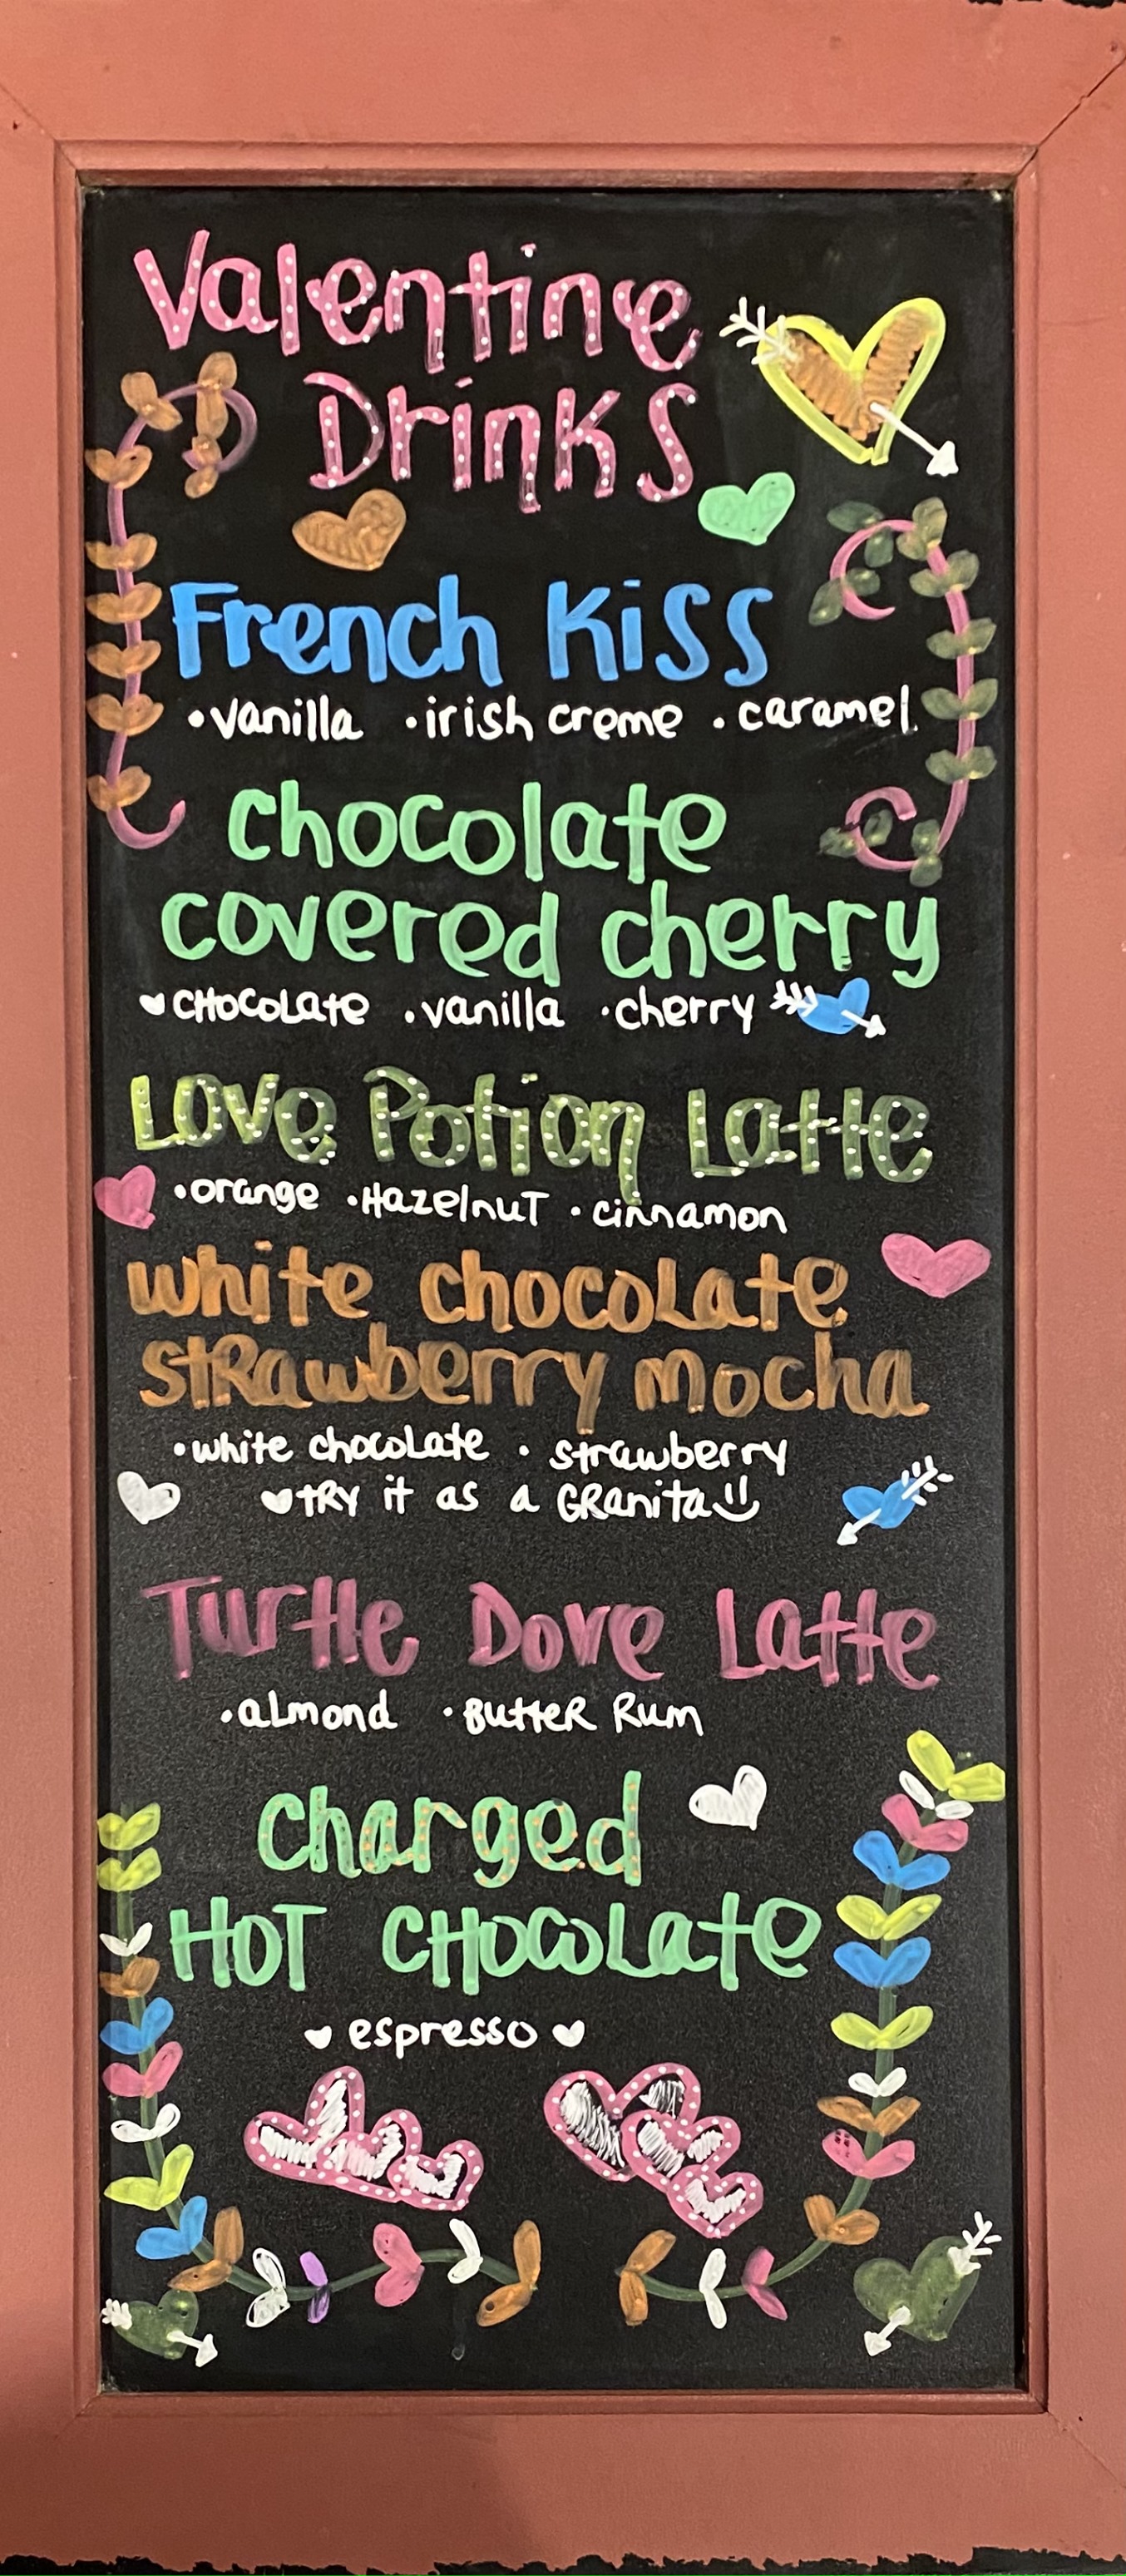 Valentine
Drinks
French Kiss
•vanilla •irish creme •caramel
chocolate
covered cherry
♥CHOCOLate •vanilla •cherry
Love Potion Latte
•orange •HazelnuT •cinnamon
white chocoLate
stRawberry mocha
•white chocolate • strawberry
♥tRY it as a GRanita
Turtle Dove Latte
•aLmond •ButteR Rum
charged
HOT CHocoLate
♥ espresso ♥